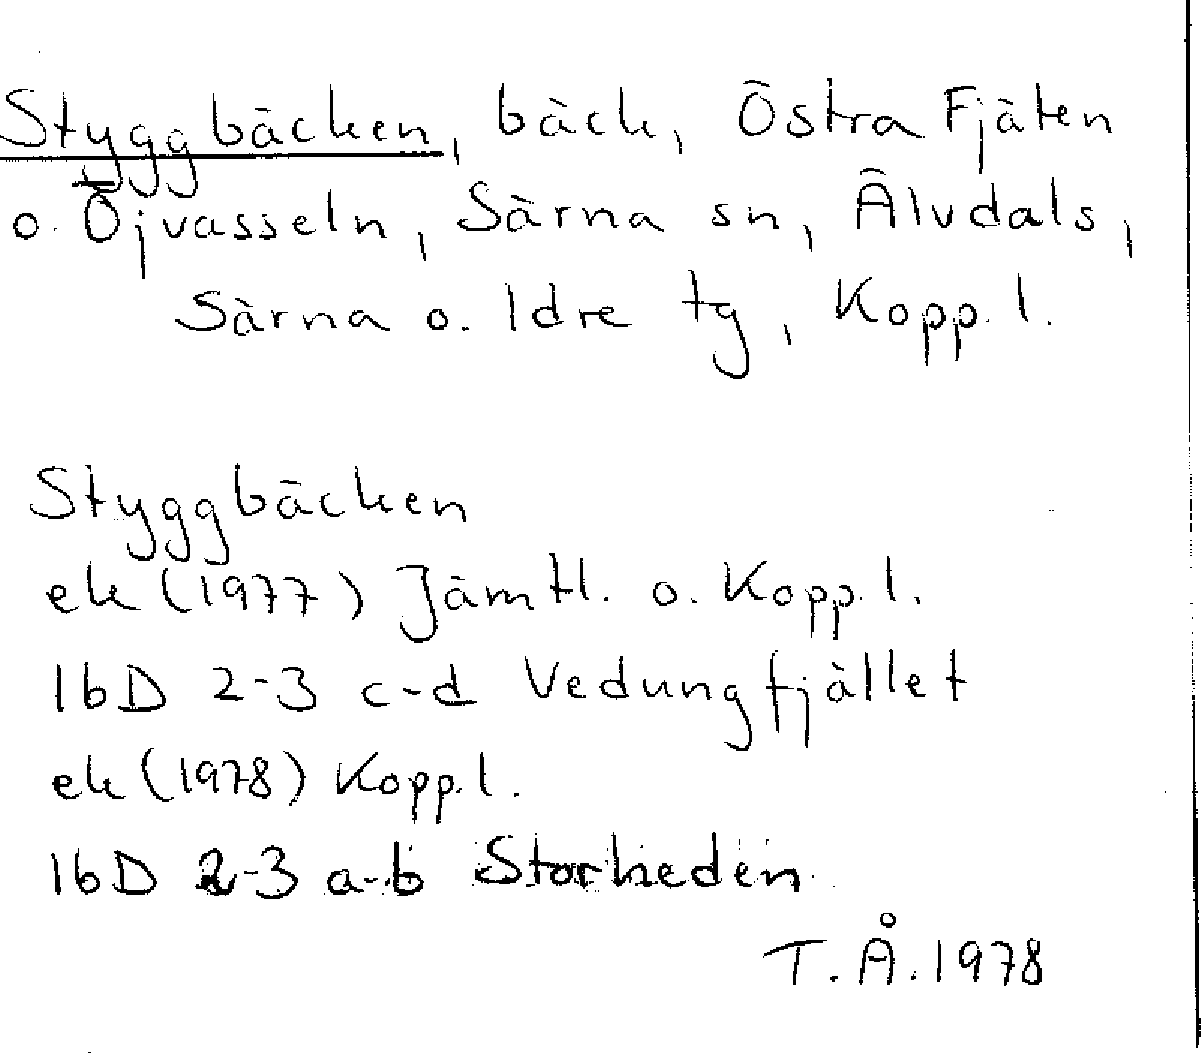 Styggbäcken, bäck, Östra Fjäten
o. Öjvasseln, Särna sn, Älvdals,
Särna o. Idre tg, Kopp. l.
Styggbäcken
ek (1977) Jämtl. o. Kopp. l.
16D 2-3 c-d Vedungfjället
ek (1978) Kopp. l.
16D 2-3 a-b Storheden
T. Å. 1978